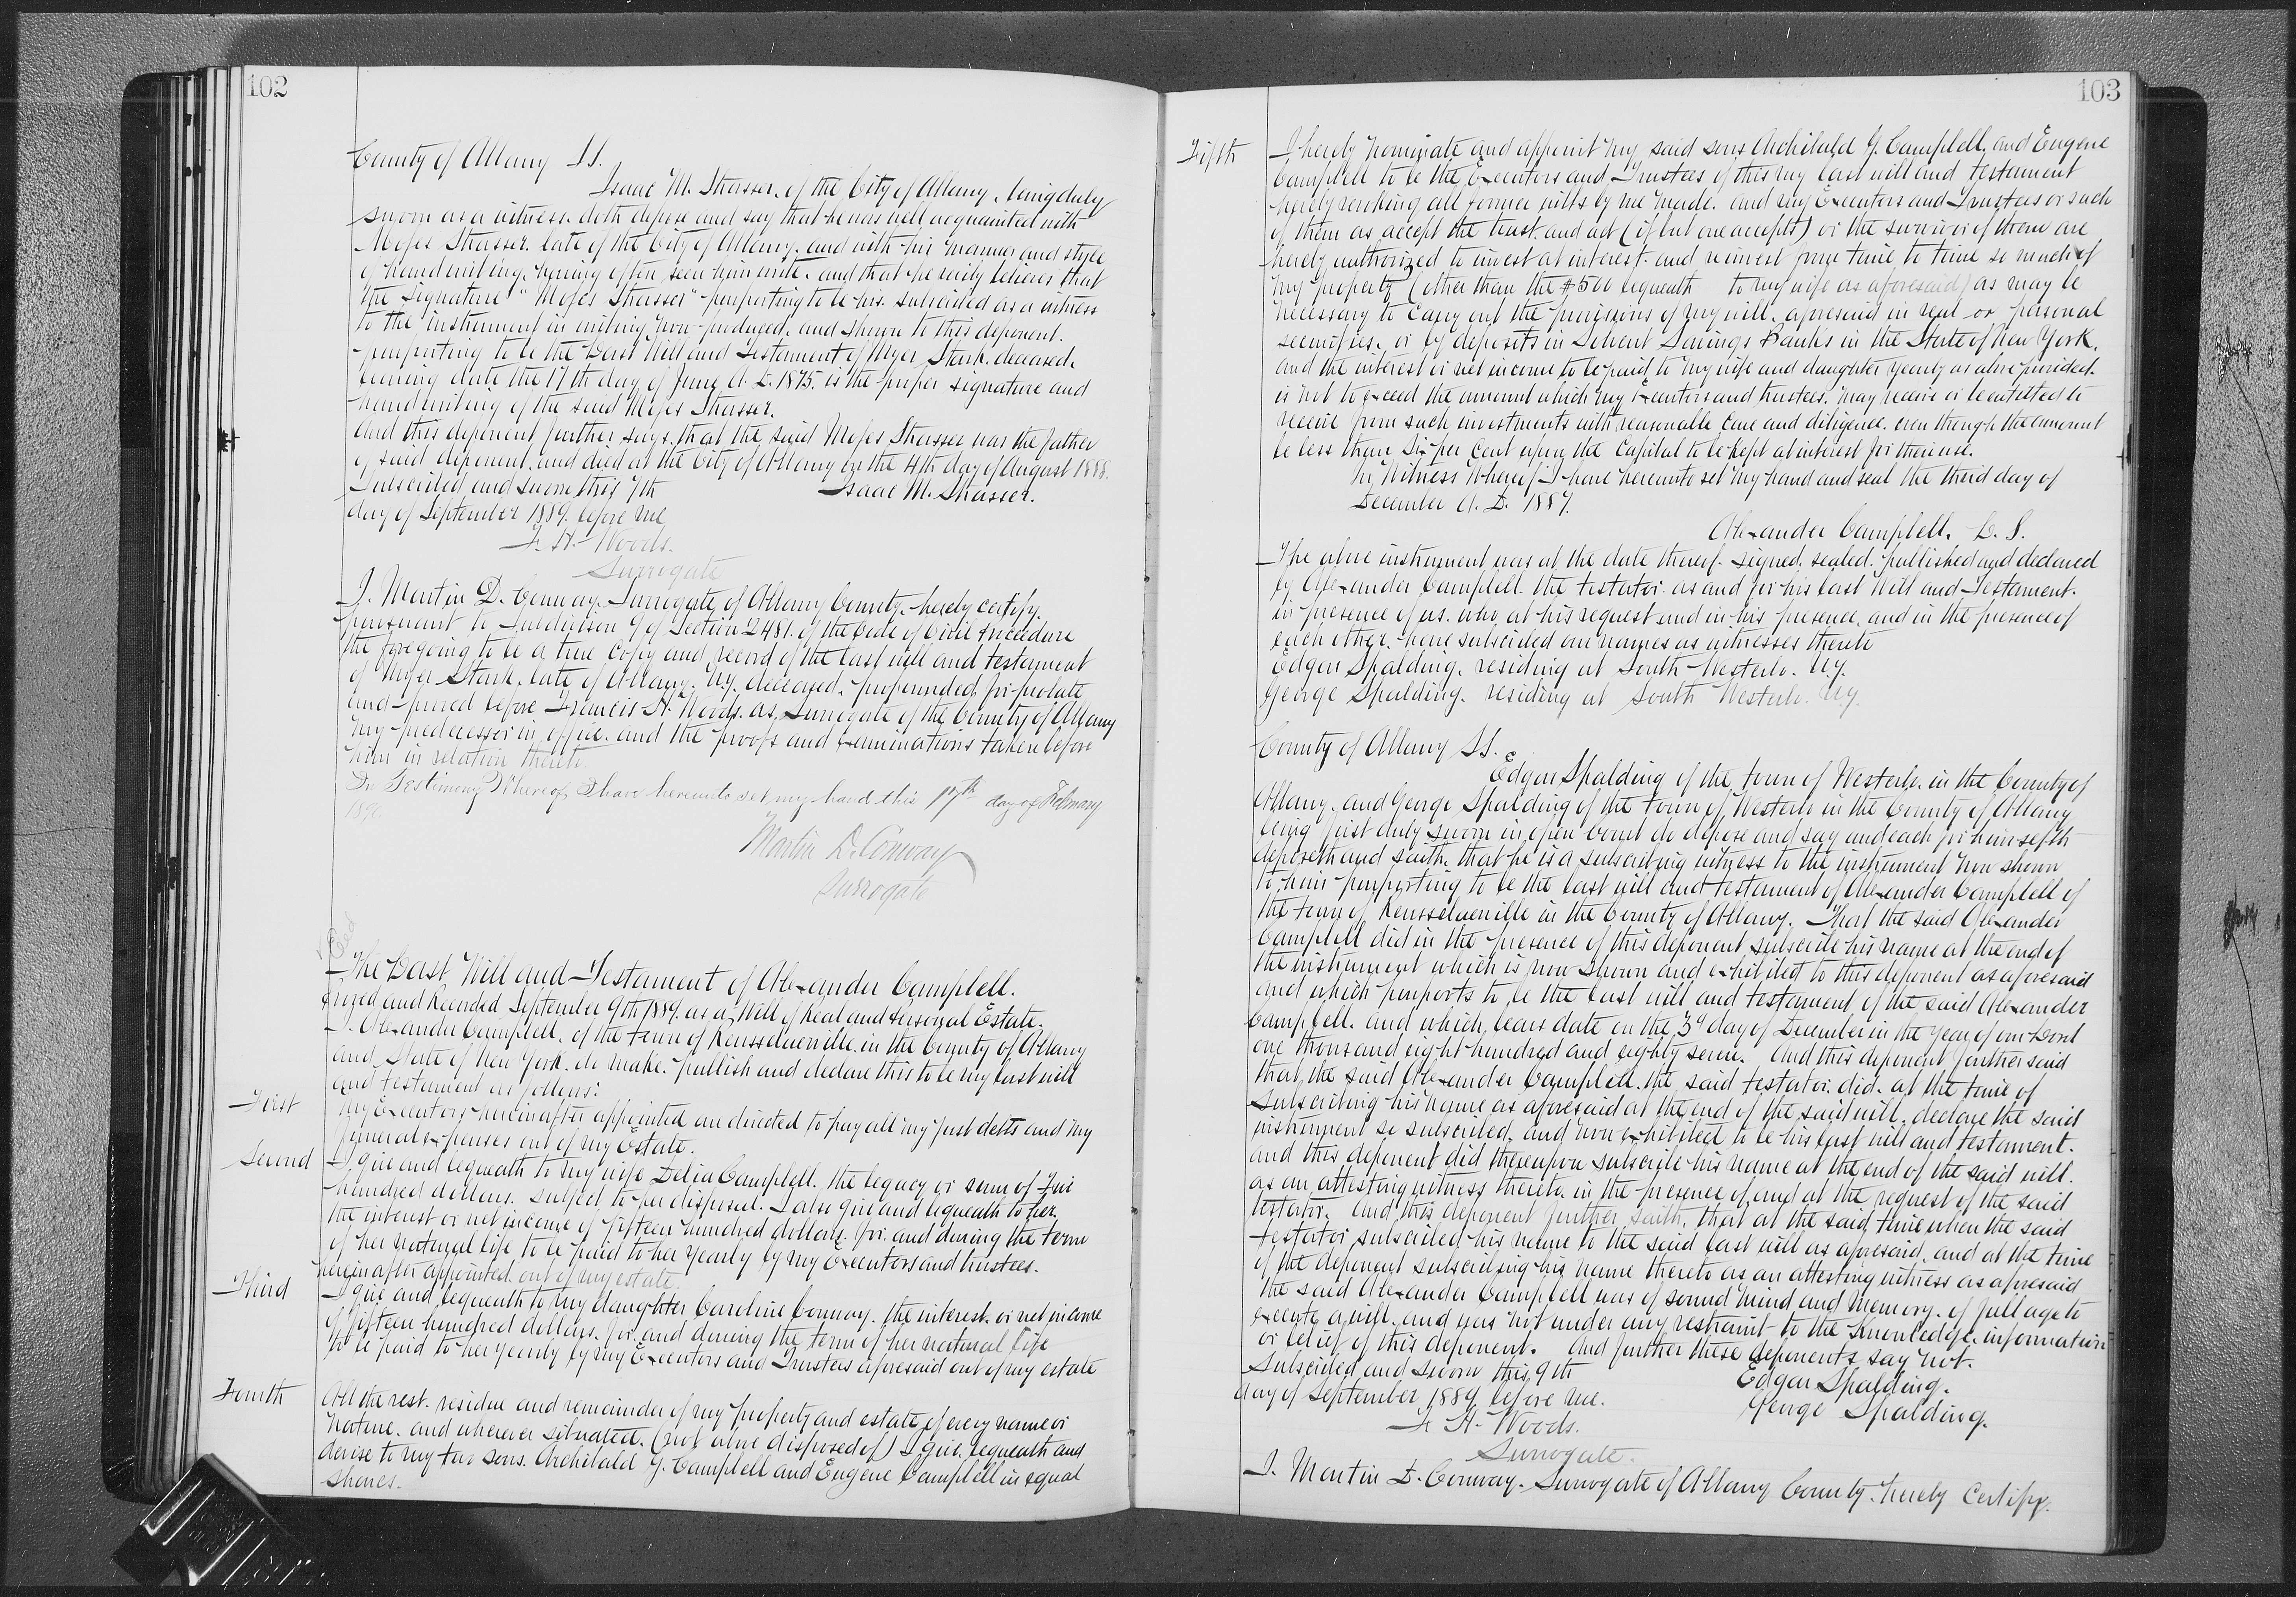 102
County of Albany SS.
Isaac M. Strasser. of the City of Albany. being duly
sworn as a witness. doth depose and say that he was well acquainted with
Moses Strasser. late of the City of Albany. and with his manner and style
of handwriting. having often seen him write. and that he verily believes that
the signature "Moses Strasser" purporting to be his. subscribed as a witness
to the instrument in writing now produced. and shown to this deponent.
purporting to be the Last Will and Testament of Myer Stark. deceased.
bearing date the 17th day of June A. D. 1875. is the proper signature and
handwriting of the said Moses Strasser.
And this deponent further says. that the said Moses Strasser was the father
of said deponent. and died at the City of Albany on the 4th day of August 1888.
Subscribed and sworn this 7th
Isaac M. Strasser.
day of September 1889. before me
F. H. Woods.
Surrogate
I. Martin D. Conway. Surrogate of Albany County. hereby certify.
pursuant to Subdivision 9 of Section 2481. of the Code of Civil Procedure
the foregoing to be a true copy and record of the last will and testament
of Myer Stark. late of Albany. N.y. deceased. propounded for probate
and proved before Francis H. Woods. as Surrogate of the County of Albany
my predecessor in office. and the proofs and examinations taken before
him in relation thereto.
In Testimony Whereof, I have hereunto set my hand this 17th day of February
Martin D. Conway
Surrogate
The Last Will and Testament of Alexander Campbell.
Proved and Recorded September 9th 1889. as a Will of Real and Personal Estate.
I. Alexander Campbell. of the town of Rensselaerville. in the County of Albany
and State of New York. do make. publish and declare this to be my last will
and testament as follows:
First
My Executors hereinafter appointed are directed to pay all my just debts and my
funeral expenses out of my Estate.
Second
I give and bequeath to my wife Delia Campbell. the legacy or sum of Five
hundred dollars. subject to her disposal. I also give and bequeath to her.
the interest or net income of fifteen hundred dollars. for. and during the term
of her natural life to be paid to her yearly by my Executors and trustees.
hereinafter appointed. out of my estate
Third
I give and bequeath to my daughter Caroline Conway. the interest. or net income
of fifteen hundred dollars. for. and during the term of her natural life
to be paid to her yearly by my Executors and Trustees aforesaid out of my estate
Fourth
All the rest. residue and remainder of my property and estate of every name or
nature. and wherever situated. (not above disposed of) I give. bequeath and
devise to my two sons. Archibald Y. Campbell and Eugene Campbell in equal
shares.
103
Fifth
I hereby nominate and appoint my said sons Archibald Y. Campbell, and Eugene
Campbell to be the Executors and Trustees of this my last will and testament
hereby revoking all former wills by me made. and my Executors and Trustees or such
of them as accept the trust. and act (if but one accepts) or the survivor of them are
hereby authorized to invest at interest. and reinvest from time to time so much of
my property (other than the $500 bequeath to my wife as aforesaid) as may be
necessary to carry out the provisions of my will. aforesaid in real or personal
securities. or by deposits in Solvent Savings Banks in the State of New York.
and the interest or net income to be paid to my wife and daughter yearly as above provided.
is not to exceed the amount which my Executors and trustees. may receive or be entitled to
receive from such investments with reasonable care and diligence. even though the amount
be less than Six per cent upon the capital to be kept at interest for their use.
In Witness Whereof I have hereunto set my hand and seal the third day of
December A. D. 1887.
Alexander Campbell. L. S.
The above instrument was at the date thereof. signed. sealed. published and declared
by Alexander Campbell. the testator. as and for his last Will and Testament.
in presence of us. who. at his request and in his presence. and in the presence of
each other. have subscribed our names as witnesses thereto
Edgar Spalding. residing at South Westerlo. N.y.
George Spalding. residing at South Westerlo. N.y.
County of Albany SS.
Edgar Spalding of the town of Westerlo. in the County of
Albany. and George Spalding of the town of Westerlo in the County of Albany
being first duly sworn in open court do depose and say and each for himself
deposeth and saith. that he is a subscribing witness to the instrument now shown
to him purporting to be the last will and testament of Alexander Campbell of
the town of Rensselaerville in the County of Albany. That the said Alexander
Campbell did in the presence of this deponent. subscribe his name at the end of
the instrument which is now shown and exhibited to this deponent as aforesaid
and which purports to be the last will and testament of the said Alexander
Campbell. and which bears date on the 3d day of December in the year of our Lord
one thousand eight hundred and eighty seven. And this deponent further said
that the said Alexander Campbell. the said testator. did. at the time of
subscribing his name as aforesaid at the end of the said will. declare the said
instrument so subscribed. and now exhibited to be his last will and testament.
and this deponent did thereupon subscribe his name at the end of the said will.
as an attesting witness thereto. in the presence of. and at the request of the said
testator. And this deponent further saith. that at the said time when the said
testator subscribed his name to the said last will as aforesaid. and at the time
of the deponent subscribing his name thereto as an attesting witness as aforesaid
the said Alexander Campbell was of sound mind and memory. of full age to
execute a will. and was not under any restraint to the knowledge. information
or belief of this deponent. And further these deponents say not.
Subscribed and sworn this 9th
Edgar Spalding.
day of September 1889 before me.
George Spalding.
F. H. Woods.
Surrogate.
I. Martin D. Conway. Surrogate of Albany County. hereby certify.